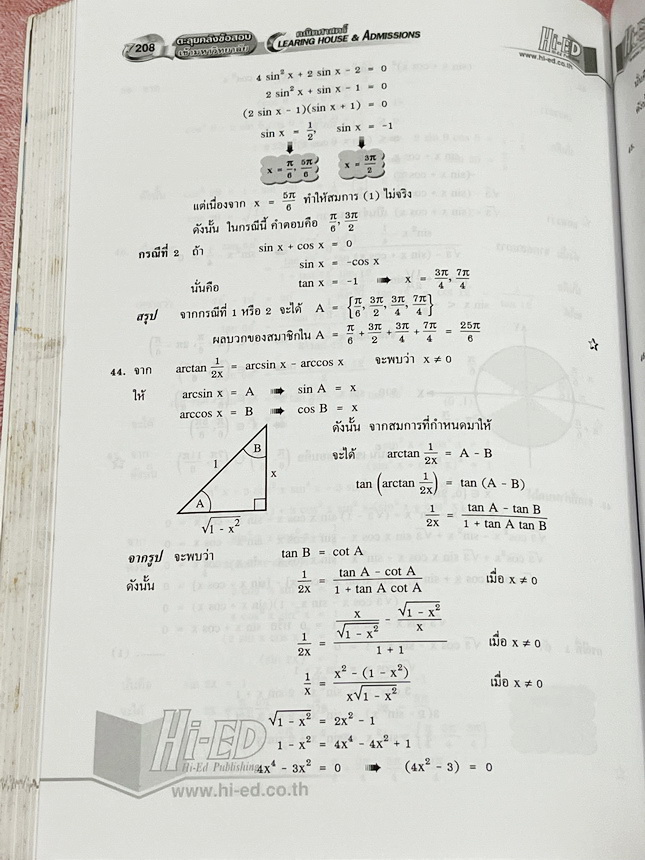 208 ตะลุยคลังข้อสอบ เข้ามหาวิทยาลัย คณิตศาสตร์ CLEARING HOUSE & ADMISSIONS
Hi-ED
www.hi-ed.co.th
4 sin² x + 2 sin x − 2 = 0
2 sin² x + sin x − 1 = 0
(2 sin x − 1)(sin x + 1) = 0
sin x = 1/2, sin x = −1
x = π/6, 5π/6 x = 3π/2
แต่เนื่องจาก x = 5π/6 ทำให้สมการ (1) ไม่จริง
ดังนั้น ในกรณีนี้ คำตอบคือ π/6, 3π/2
กรณีที่ 2 ถ้า sin x + cos x = 0
sin x = −cos x
นั่นคือ tan x = −1 ➠ x = 3π/4, 7π/4
สรุป จากกรณีที่ 1 หรือ 2 จะได้ A = {π/6, 3π/2, 3π/4, 7π/4}
ผลบวกของสมาชิกใน A = π/6 + 3π/2 + 3π/4 + 7π/4 = 25π/6
44. จาก arctan 1/2x = arcsin x − arccos x จะพบว่า x ≠ 0
ให้ arcsin x = A ➠ sin A = x
arccos x = B ➠ cos B = x
ดังนั้น จากสมการที่กำหนดมาให้
จะได้ arctan 1/2x = A − B
tan (arctan 1/2x) = tan (A − B)
1/2x = (tan A − tan B)/(1 + tan A tan B)
B
1
x
A
√(1 − x²)
จากรูป จะพบว่า tan B = cot A
ดังนั้น 1/2x = (tan A − cot A)/(1 + tan A cot A) เมื่อ x ≠ 0
1/2x = (x/√(1 − x²) − √(1 − x²)/x)/(1 + 1) เมื่อ x ≠ 0
1/x = (x² − (1 − x²))/(x√(1 − x²)) เมื่อ x ≠ 0
√(1 − x²) = 2x² − 1
1 − x² = 4x⁴ − 4x² + 1
4x⁴ − 3x² = 0 ➠ (4x² − 3) = 0
Hi-ED
Hi-Ed Publishing
www.hi-ed.co.th